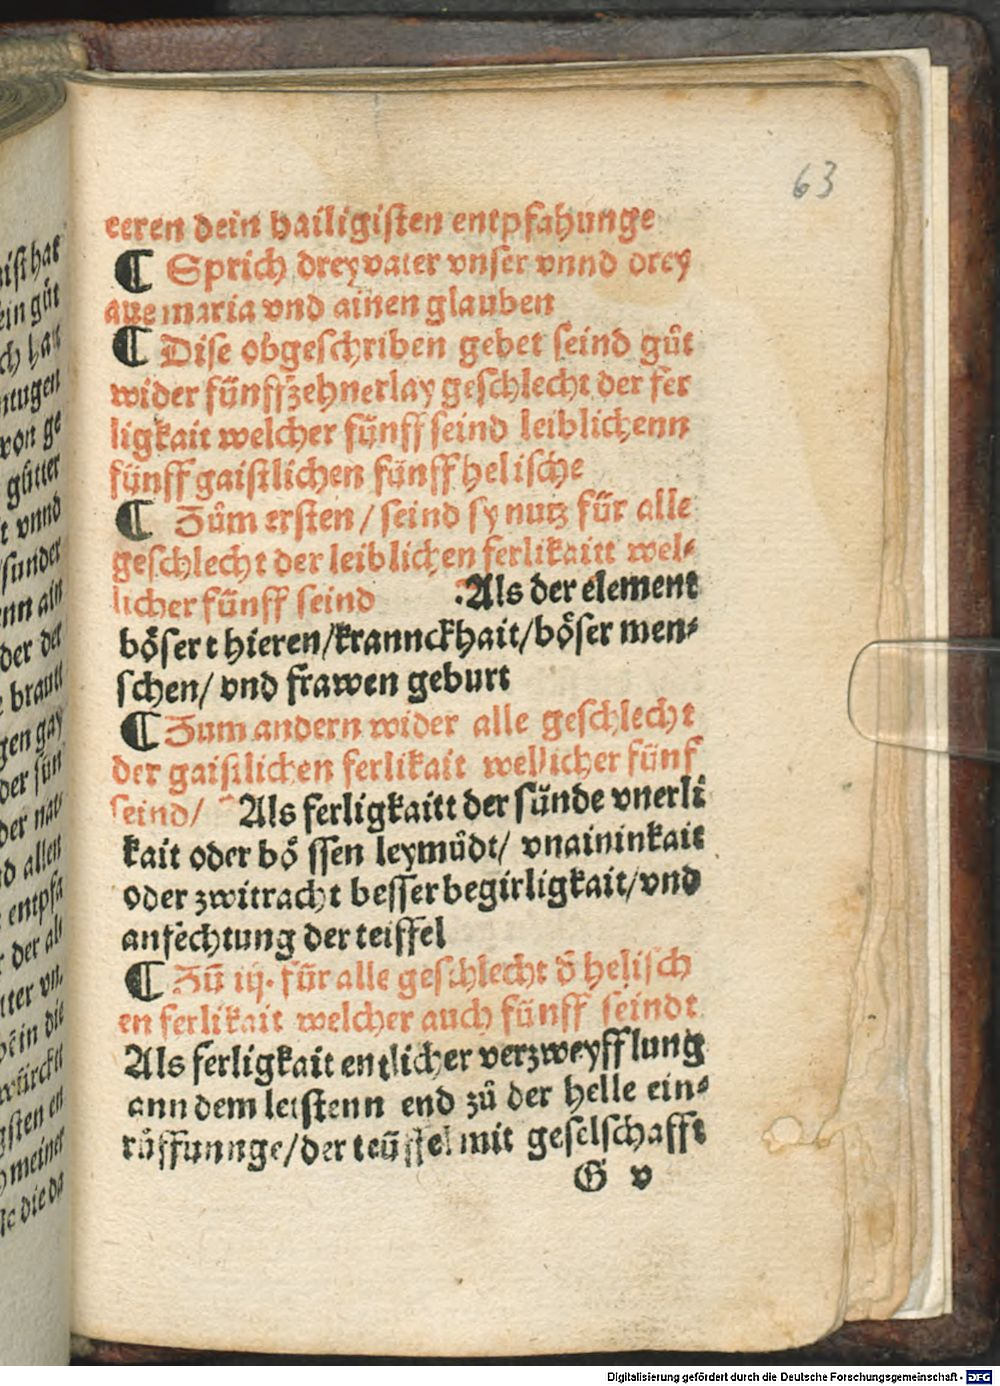 63
eeren dein hailigisten entpfahunge
¶ Sprich drey vater vnser vnnd drey
aue maria vnd ainen glauben
¶ Dise obgeschriben gebet seind gůt
wider fünffzehnerlay geschlecht der fer
ligkait welcher fünff seind leiblichenn
fünff gaistlichen fünff helische
¶ Zům ersten / seind sy nutz für alle
geschlecht der leiblichen ferlikaitt wel⸗
licher fünff seind Als der element
böser thieren/krannckhait/böser men⸗
schen/ vnd frawen geburt
¶ Zum andern wider alle geschlecht
der gaistlichen ferlikait wellicher fünf
seind/ Als ferligkaitt der sünde vnerli
kait oder bö ssen leymůdt/ vnaininkait
oder zwitracht besser begirligkait/vnd
anfechtung der teiffel
¶ Zů iij. für alle geschlecht d̄ helisch
en ferlikait welcher auch fünff seindt
Als ferligkait entlicher verzweyfflung
ann dem letstenn end zů der helle ein⸗
růffunnge/der teüffel mit geselschafft
G v
ist hat
ein gůt
ch hat
ntugen
von ge
gütter
t vnnd
sunder
nn ain
der der
braut
gen gay
der sün
der nat
d allen
entpfa
der ab
tter vn
in die
würckt
gsten en
meiner
le die da
Digitalisierung gefördert durch die Deutsche Forschungsgemeinschaft - DFG